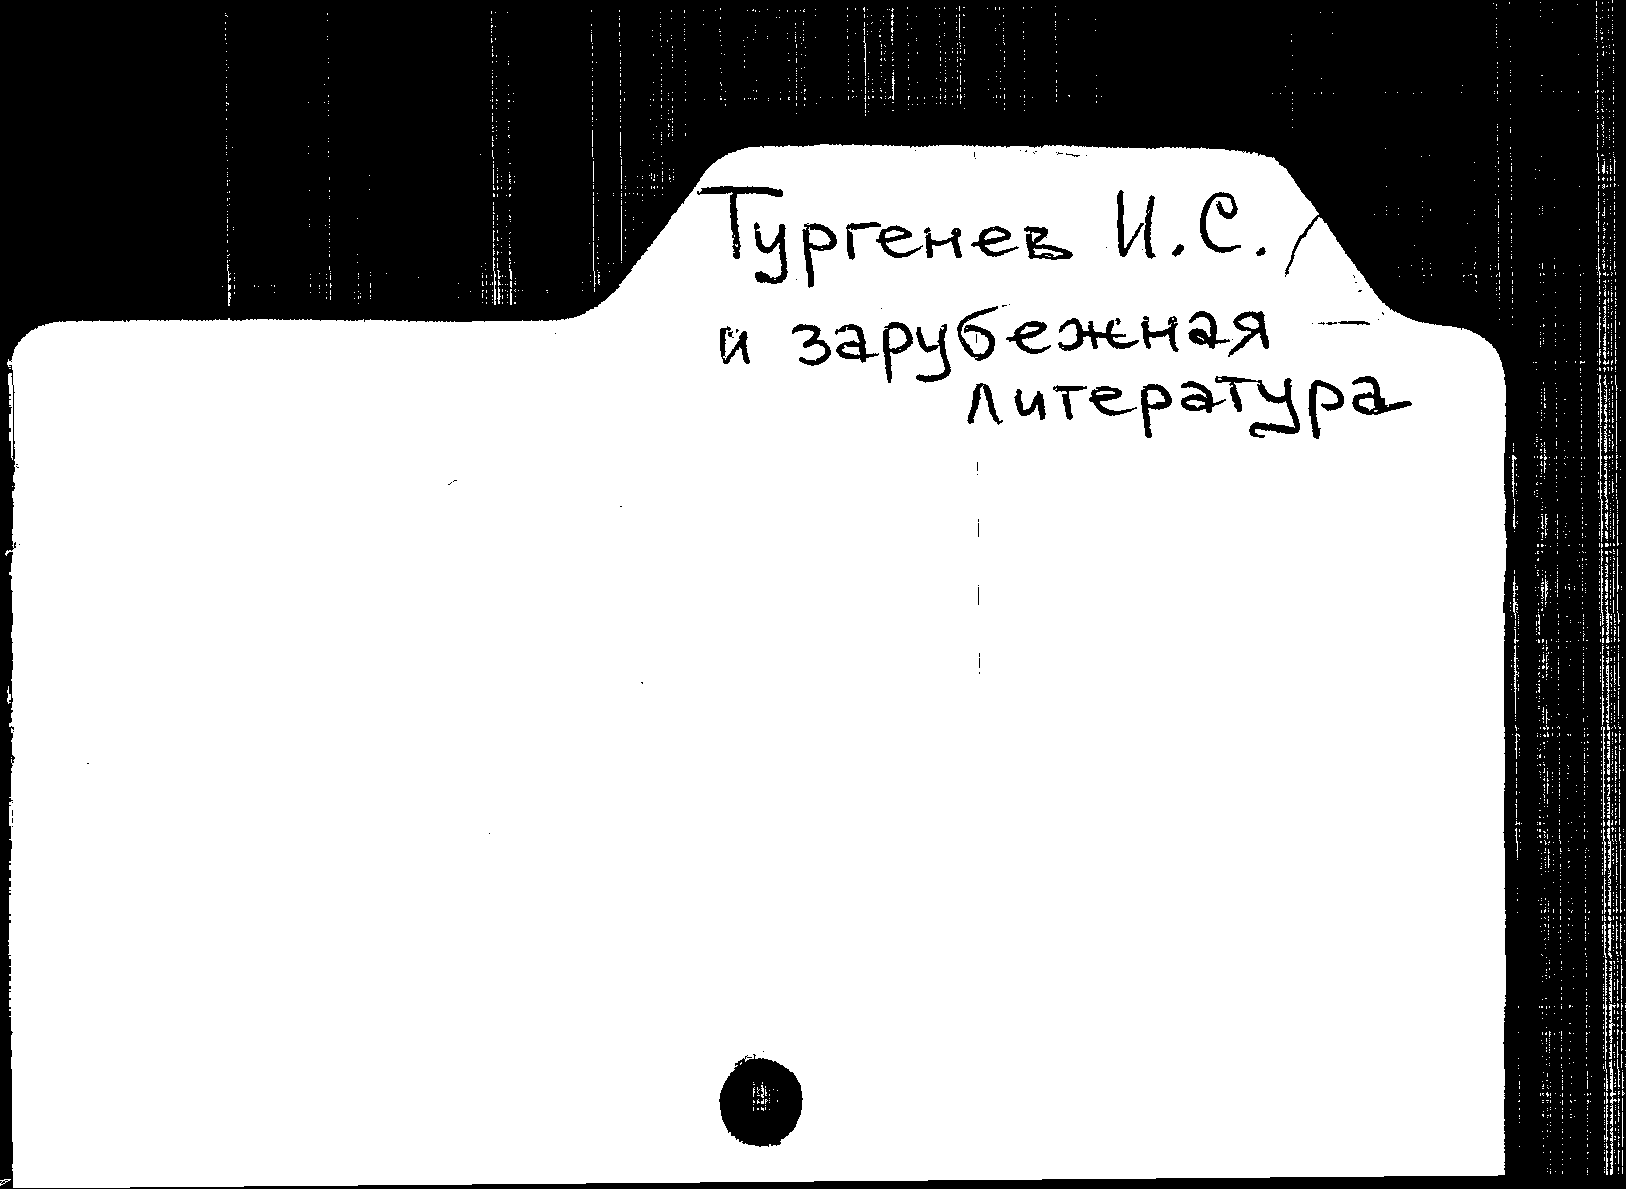 Тургенев И.С.
и зарубежная
литература